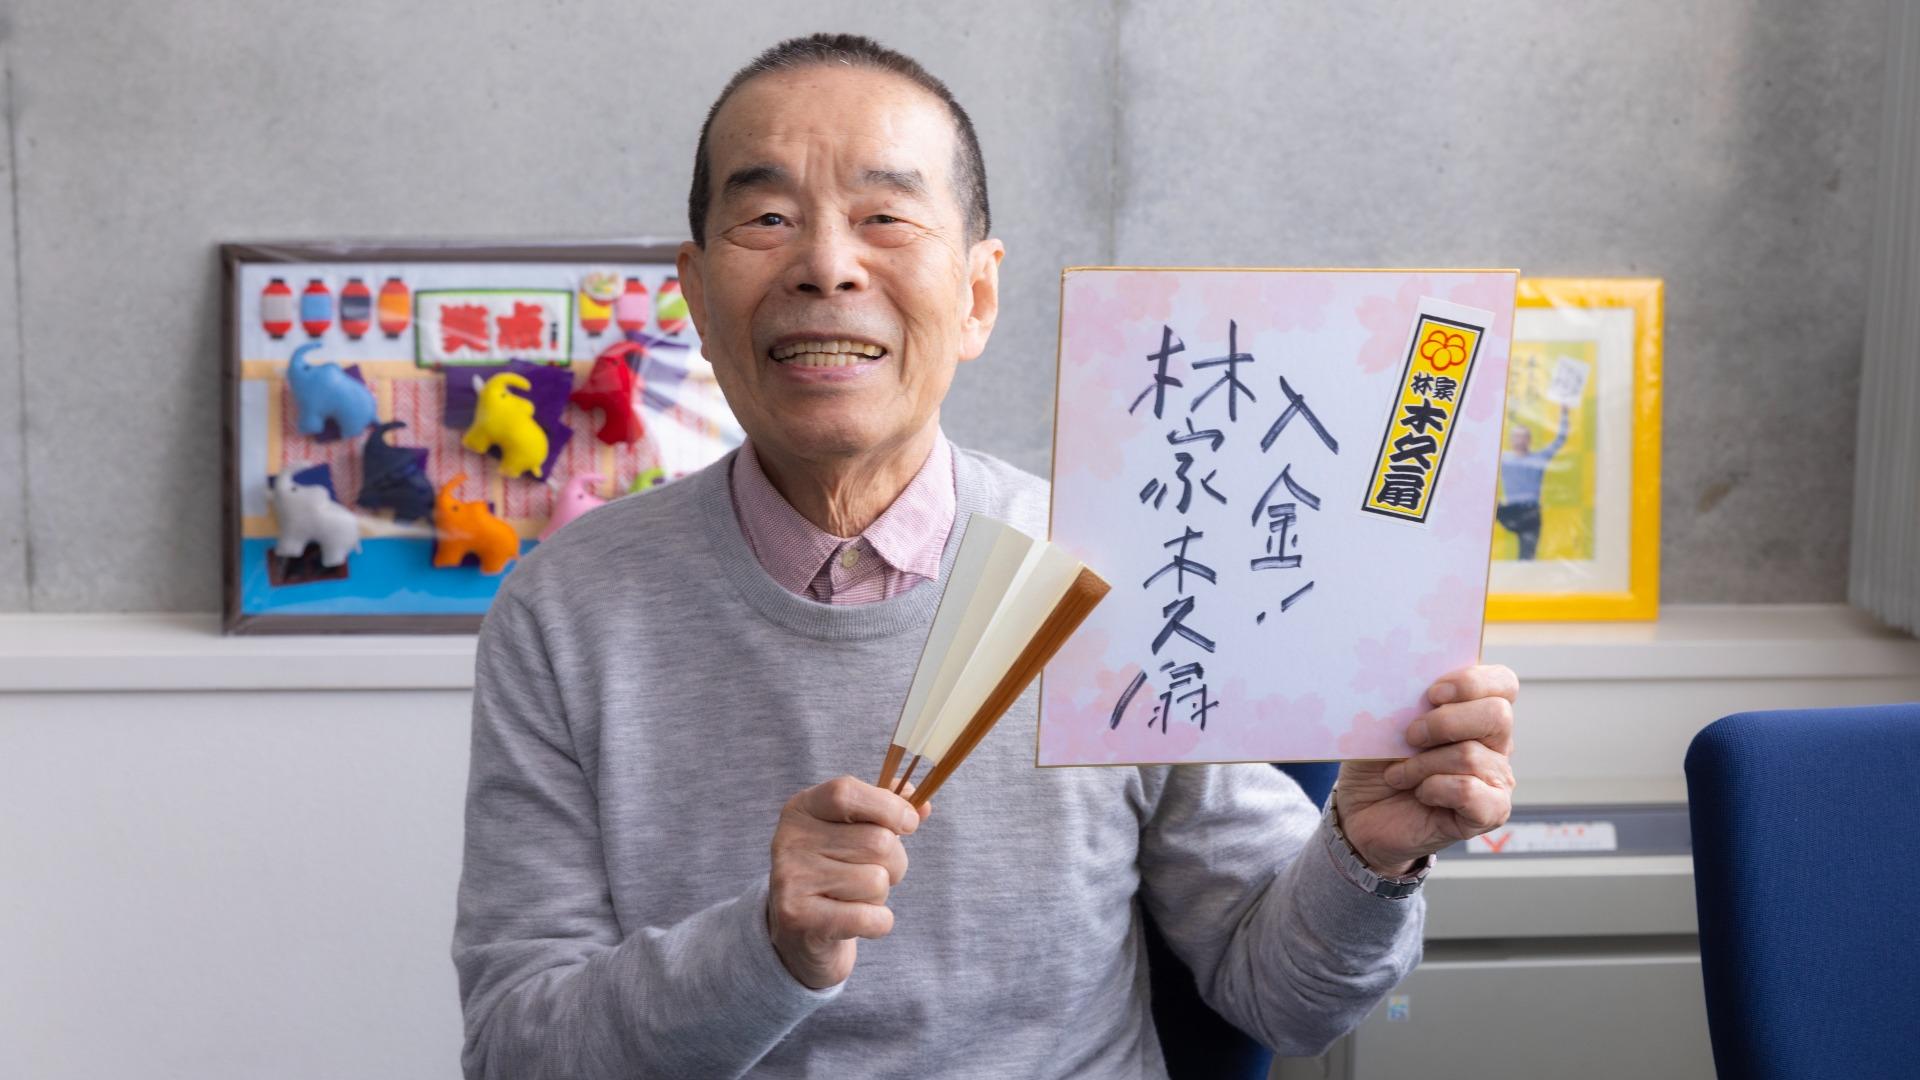 笑点
入金!
林家木久扇
林家
木久扇